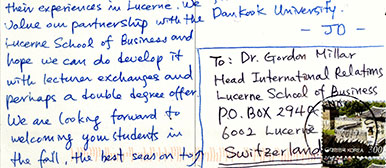 their experiences in Lucerne. We
value our partnership with the
Lucerne School of Business and
hope we can do develop it
with lecturer exchanges and
perhaps a double degree offer.
We are looking forward to
welcoming your students in
the fall, the best season to
Dankook University.
- JO -
To: Dr. Gordon Millar
Head International Relations
Lucerne School of Business
P.O. BOX 2940
6002 Lucerne
Switzerland
KOREA